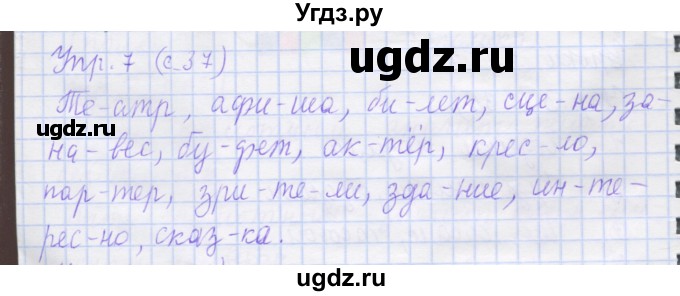 Угдз.ру
Упр. 7 (с. 37)
ugdz.ru
Те-атр, афи-ша, би-лет, сце-на, за-
ugdz.ru
на-вес, бу-фет, ак-тёр, крес-ло,
пар-тер, зри-те-ли, зда-ние, ин-те-
ugdz.ru
рес-но, сказ-ка.
ugdz.ru
Угдз.ру